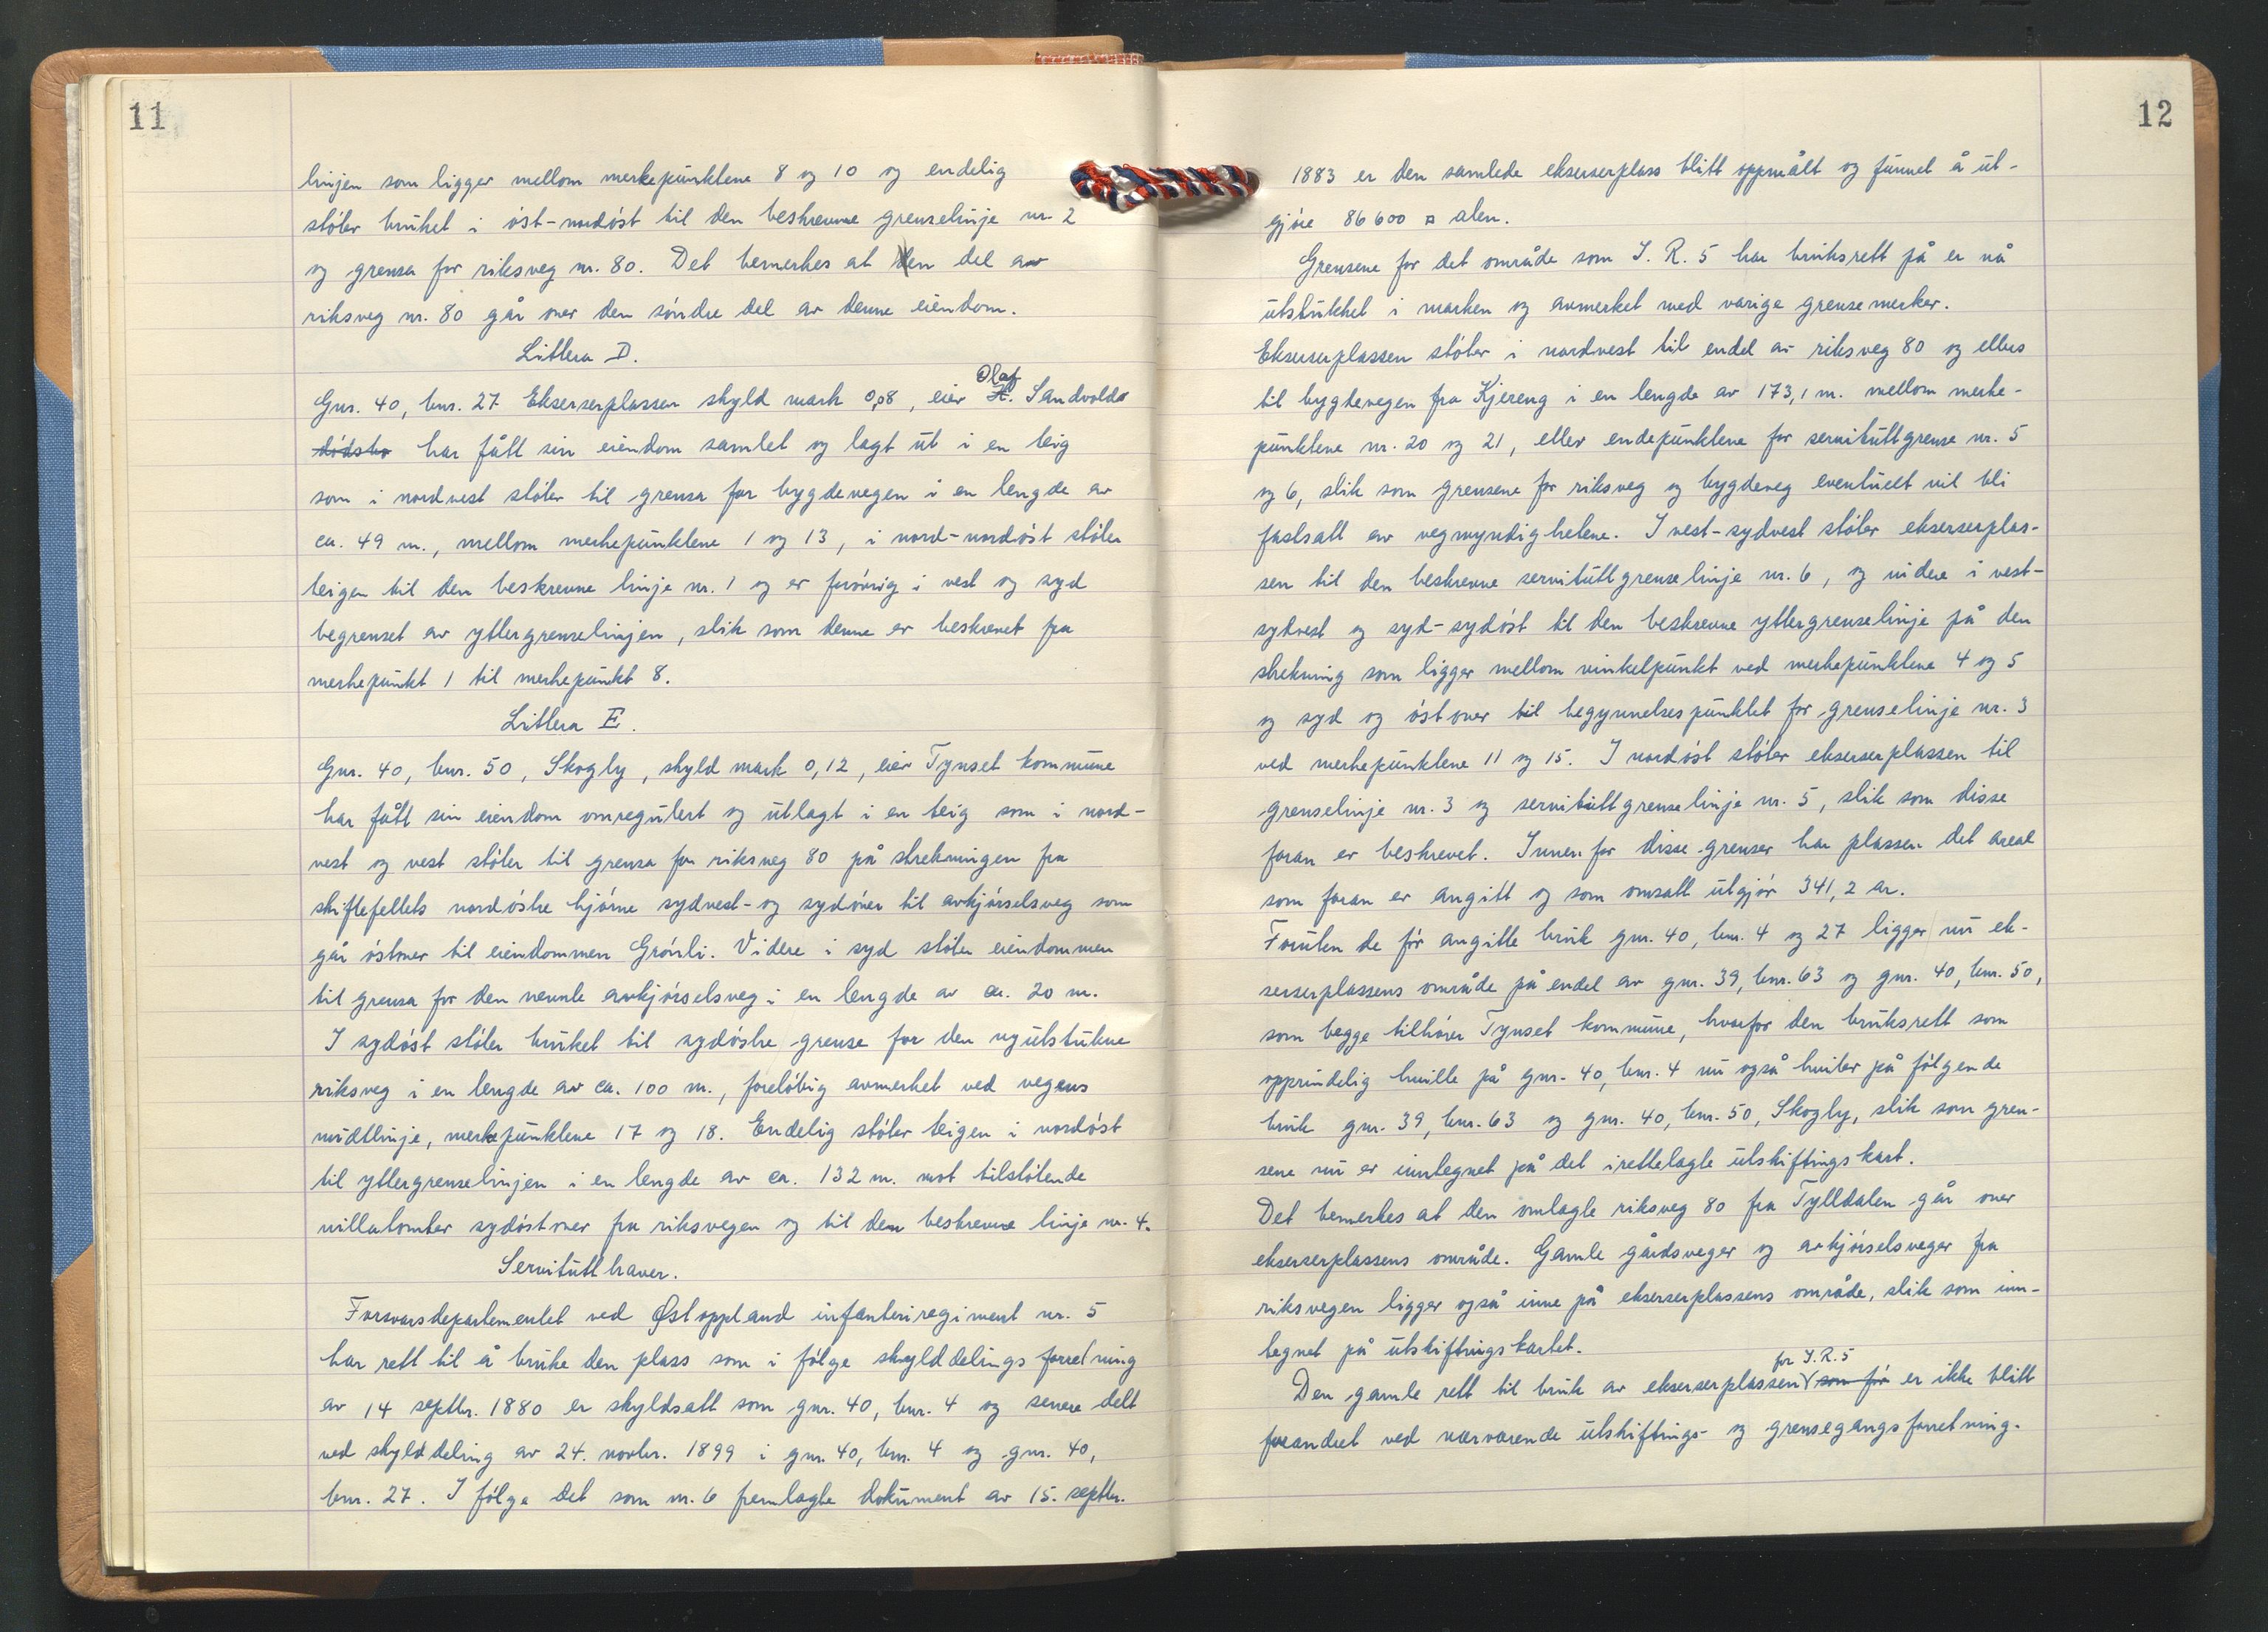 11
linjen som ligger mellom merkepunktene 8 og 10 og endelig
støter bruket i øst-nordøst til den beskrevne grenselinje nr. 2
og grensa for riksveg nr. 80. Det bemerkes at en del av
riksveg nr. 80 går over den søndre del av denne eiendom.
Littera D.
Olaf
Gnr. 40, bnr. 27 Ekserserplassen skyld mark 0,08, eier H. Sandvolds
dødsbo har fått sin eiendom samlet og lagt ut i en teig
som i nordvest støter til grensa for bygdevegen i en lengde av
ca. 49 m., mellom merkepunktene 1 og 13, i nord-nordøst støter
teigen til den beskrevne linje nr. 1 og er forøvrig i vest og syd
begrenset av yttergrenselinjen, slik som denne er beskrevet fra
merkepunkt 1 til merkepunkt 8.
Littera E.
Gnr. 40, bnr. 50, Skogly, skyld mark 0,12, eier Tynset kommune
har fått sin eiendom omregulert og utlagt i en teig som i nord-
vest og vest støter til grensa for riksveg 80 på strekningen fra
skiftefeltets nordøstre hjørne sydvest- og sydover til avkjørselsveg som
går østover til eiendommen Grønli. Videre i syd støter eiendommen
til grensa for den nevnte avkjørselsveg i en lengde av ca. 20 m.
I sydøst støter bruket til sydøstre grense for den nyutstukne
riksveg i en lengde av ca. 100 m., foreløbig avmerket ved vegens
midtlinje, merkepunktene 17 og 18. Endelig støter teigen i nordøst
til yttergrenselinjen i en lengde av ca. 132 m. mot tilstøtende
villatomter sydøstover fra riksvegen og til den beskrevne linje nr. 4.
Servitutthaver.
Forsvarsdepartementet ved Østoppland infanteriregiment nr. 5
har rett til å bruke den plass som i følge skylddelingsforretning
av 14 septbr. 1880 er skyldsatt som gnr. 40, bnr. 4 og senere delt
ved skylddeling av 24. novbr. 1899 i gnr. 40, bnr. 4 og gnr. 40,
bnr. 27. I følge det som nr. 6 fremlagte dokument av 15. septbr.
12
1883 er den samlede ekserserplass blitt oppmålt og funnet å ut-
gjøre 86600 □ alen.
Grensene for det område som I. R. 5 har bruksrett på er nå
utstukket i marken og avmerket med varige grensemerker.
Ekserserplassen støter i nordvest til endel av riksveg 80 og ellers
til bygdevegen fra Kjereng i en lengde av 173,1 m. mellom merke-
punktene nr. 20 og 21, eller endepunktene for servituttgrense nr. 5
og 6, slik som grensene for riksveg og bygdeveg eventuelt vil bli
fastsatt av vegmyndighetene. I vest-sydvest støter ekserserplas-
sen til den beskrevne servituttgrenselinje nr. 6, og videre i vest-
sydvest og syd-sydøst til den beskrevne yttergrenselinje på den
strekning som ligger mellom vinkelpunkt ved merkepunktene 4 og 5
og syd og østover til begynnelsespunktet for grenselinje nr. 3
ved merkepunktene 11 og 15. I nordøst støter ekserserplassen til
grenselinje nr. 3 og servituttgrenselinje nr. 5, slik som disse
foran er beskrevet. Innenfor disse grenser har plassen det areal
som foran er angitt og som omsatt utgjør 341,2 ar.
Foruten de før angitte bruk gnr. 40, bnr. 4 og 27 ligger nu ek-
serserplassens område på endel av gnr. 39, bnr. 63 og gnr. 40, bnr. 50,
som begge tilhører Tynset kommune, hvorfor den bruksrett som
opprindelig hvilte på gnr. 40, bnr. 4 nu også hviler på følgende
bruk gnr. 39, bnr. 63 og gnr. 40, bnr. 50, Skogly, slik som gren-
sene nu er inntegnet på det irettelagte utskiftingskart.
Det bemerkes at den omlagte riksveg 80 fra Tylldalen går over
ekserserplassens område. Gamle gårdsveger og avkjørselsveger fra
riksvegen ligger også inne på ekserserplassens område, slik som inn-
tegnet på utskiftingskartet.
for I.R.5
Den gamle rett til bruk av ekserserplassen som før er ikke blitt
forandret ved nærværende utskiftings- og grensegangsforretning.